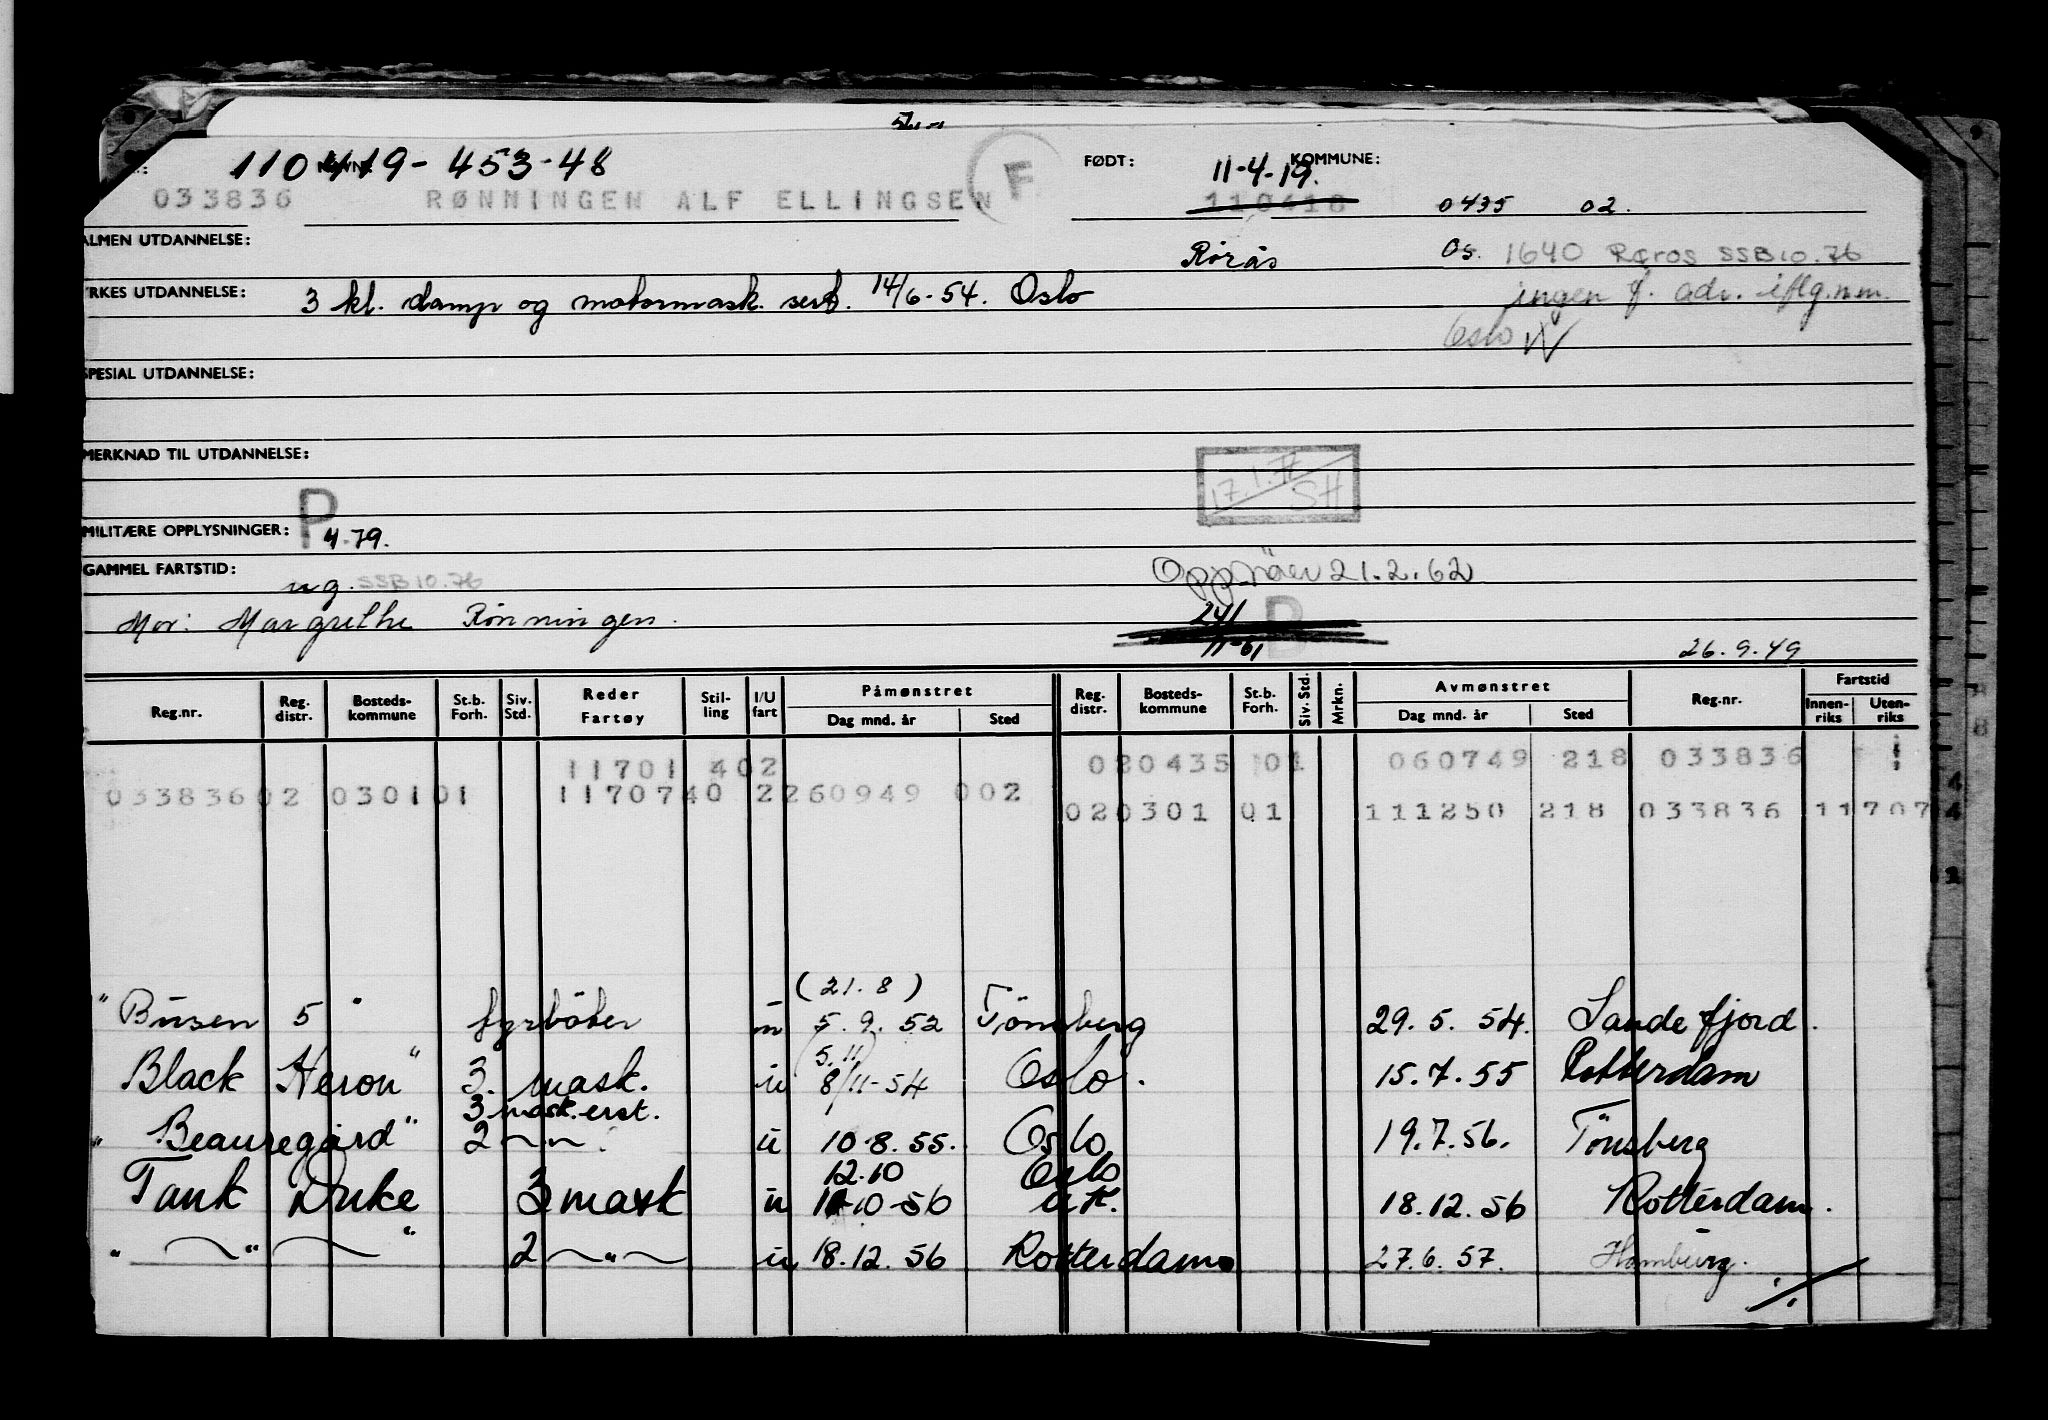 110419-453-48 FØDT: 11-4-19. KOMMUNE:
033836 RØNNINGEN ALF ELLINGSEN F 110418 0435 02.
ALMEN UTDANNELSE: Rørås Os. 1640 Røros SSB 10.76
YRKES UTDANNELSE: 3 kl. damp og motormask. sert. 14/6-54. Oslo ingen f. adr. iflg. n.m.
Oslo
SPESIAL UTDANNELSE:
MERKNAD TIL UTDANNELSE:
17.1. SH
MILITÆRE OPPLYSNINGER: P 4.79.
GAMMEL FARTSTID: ug. SSB 10.76 21.2.62
Mor: Margrethe Rønningen. 24/ 11-61 26.9.49
Reg.nr. Reg. distr. Bosteds-kommune St.b. Forh. Siv. Std. Reder Fartøy Stil-ling I/U fart Påmønstret Dag mnd. år Sted Reg. distr. Bosteds-kommune St.b. Forh. Siv. Std. Mrkn. Avmønstret Dag mnd. år Sted Reg.nr. Fartstid Innen-riks Uten-riks
11701 402 020435 01 060749 218 033836
03383602 030101 1170740 2260949 002 020301 01 111250 218 033836 117074
(21.8)
"Busen 5" fyrböter u 5.9.52 Tönsberg 29.5.54. Sandefjord.
(5.11)
Black Heron" 3. mask. u 8/11-54 Oslo. 15.7.55 Rotterdam
3 mask. erst.
"Beauregard" 2 ~"~ u 10-8.55. Oslo 19.7.56. Tönsberg
12.10 Oslo
Tank Duke 3 mask u 11-10-56 u.k. 18.12.56 Rotterdam.
" ~"~ " 2 ~"~ u 18.12.56 Rotterdam 27.6.57. Hamburg.
./.